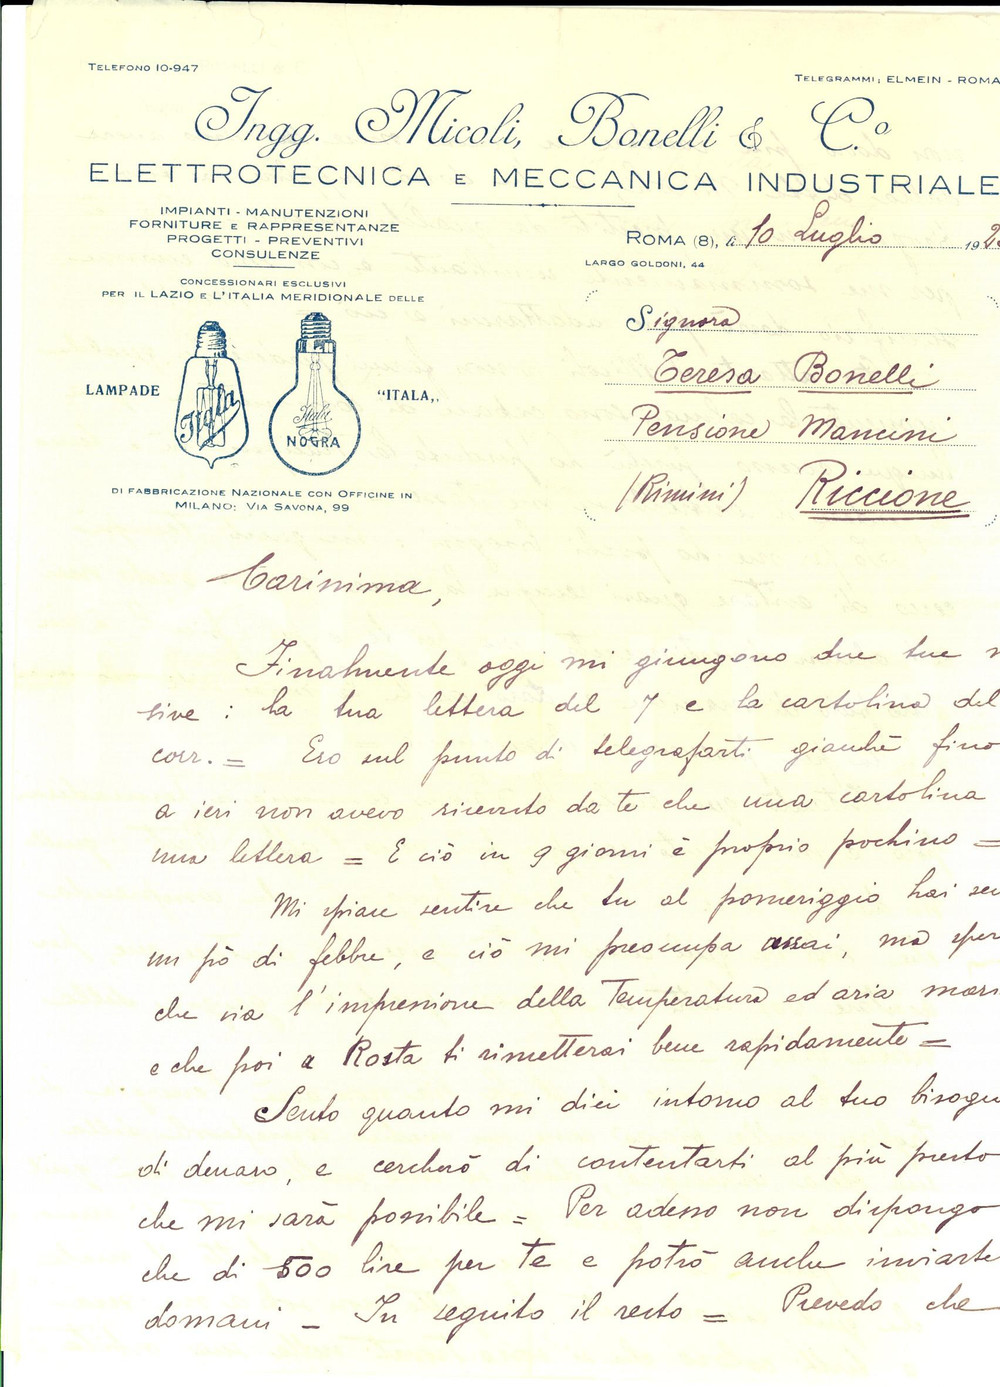 TELEFONO 10-947
TELEGRAMMI: ELMEIN - ROMA
Ingg. Micoli, Bonelli & C.o
ELETTROTECNICA E MECCANICA INDUSTRIALE
IMPIANTI - MANUTENZIONI
FORNITURE E RAPPRESENTANZE
PROGETTI - PREVENTIVI
CONSULENZE
ROMA (8), li 10 Luglio 192
LARGO GOLDONI, 44
CONCESSIONARI ESCLUSIVI
PER IL LAZIO E L'ITALIA MERIDIONALE DELLE
LAMPADE
Itala
Itala
NOGRA
"ITALA„
DI FABBRICAZIONE NAZIONALE CON OFFICINE IN
MILANO: VIA SAVONA, 99
Signora
Teresa Bonelli
Pensione Mancini
(Rimini) Riccione
Carissima,
Finalmente oggi mi giungono due tue m
sive : la tua lettera del 7 e la cartolina del
corr. = Ero sul punto di telegrafarti giacchè fino
a ieri non avevo ricevuto da te che una cartolina
una lettera = E ciò in 9 giorni è proprio pochino =
Mi spiace sentire che tu al pomeriggio hai sem
un pò di febbre, e ciò mi preoccupa assai, ma sper
che sia l'impressione della Temperatura ed aria mari
e che poi a Rosta ti rimetterai bene rapidamente =
Sento quanto mi dici intorno al tuo bisogn
di denaro, e cercherò di contentarti al più presto
che mi sarà possibile = Per adesso non dispongo
che di 500 lire per te e potrò anche inviarte
domani - In seguito il resto = Prevedo che